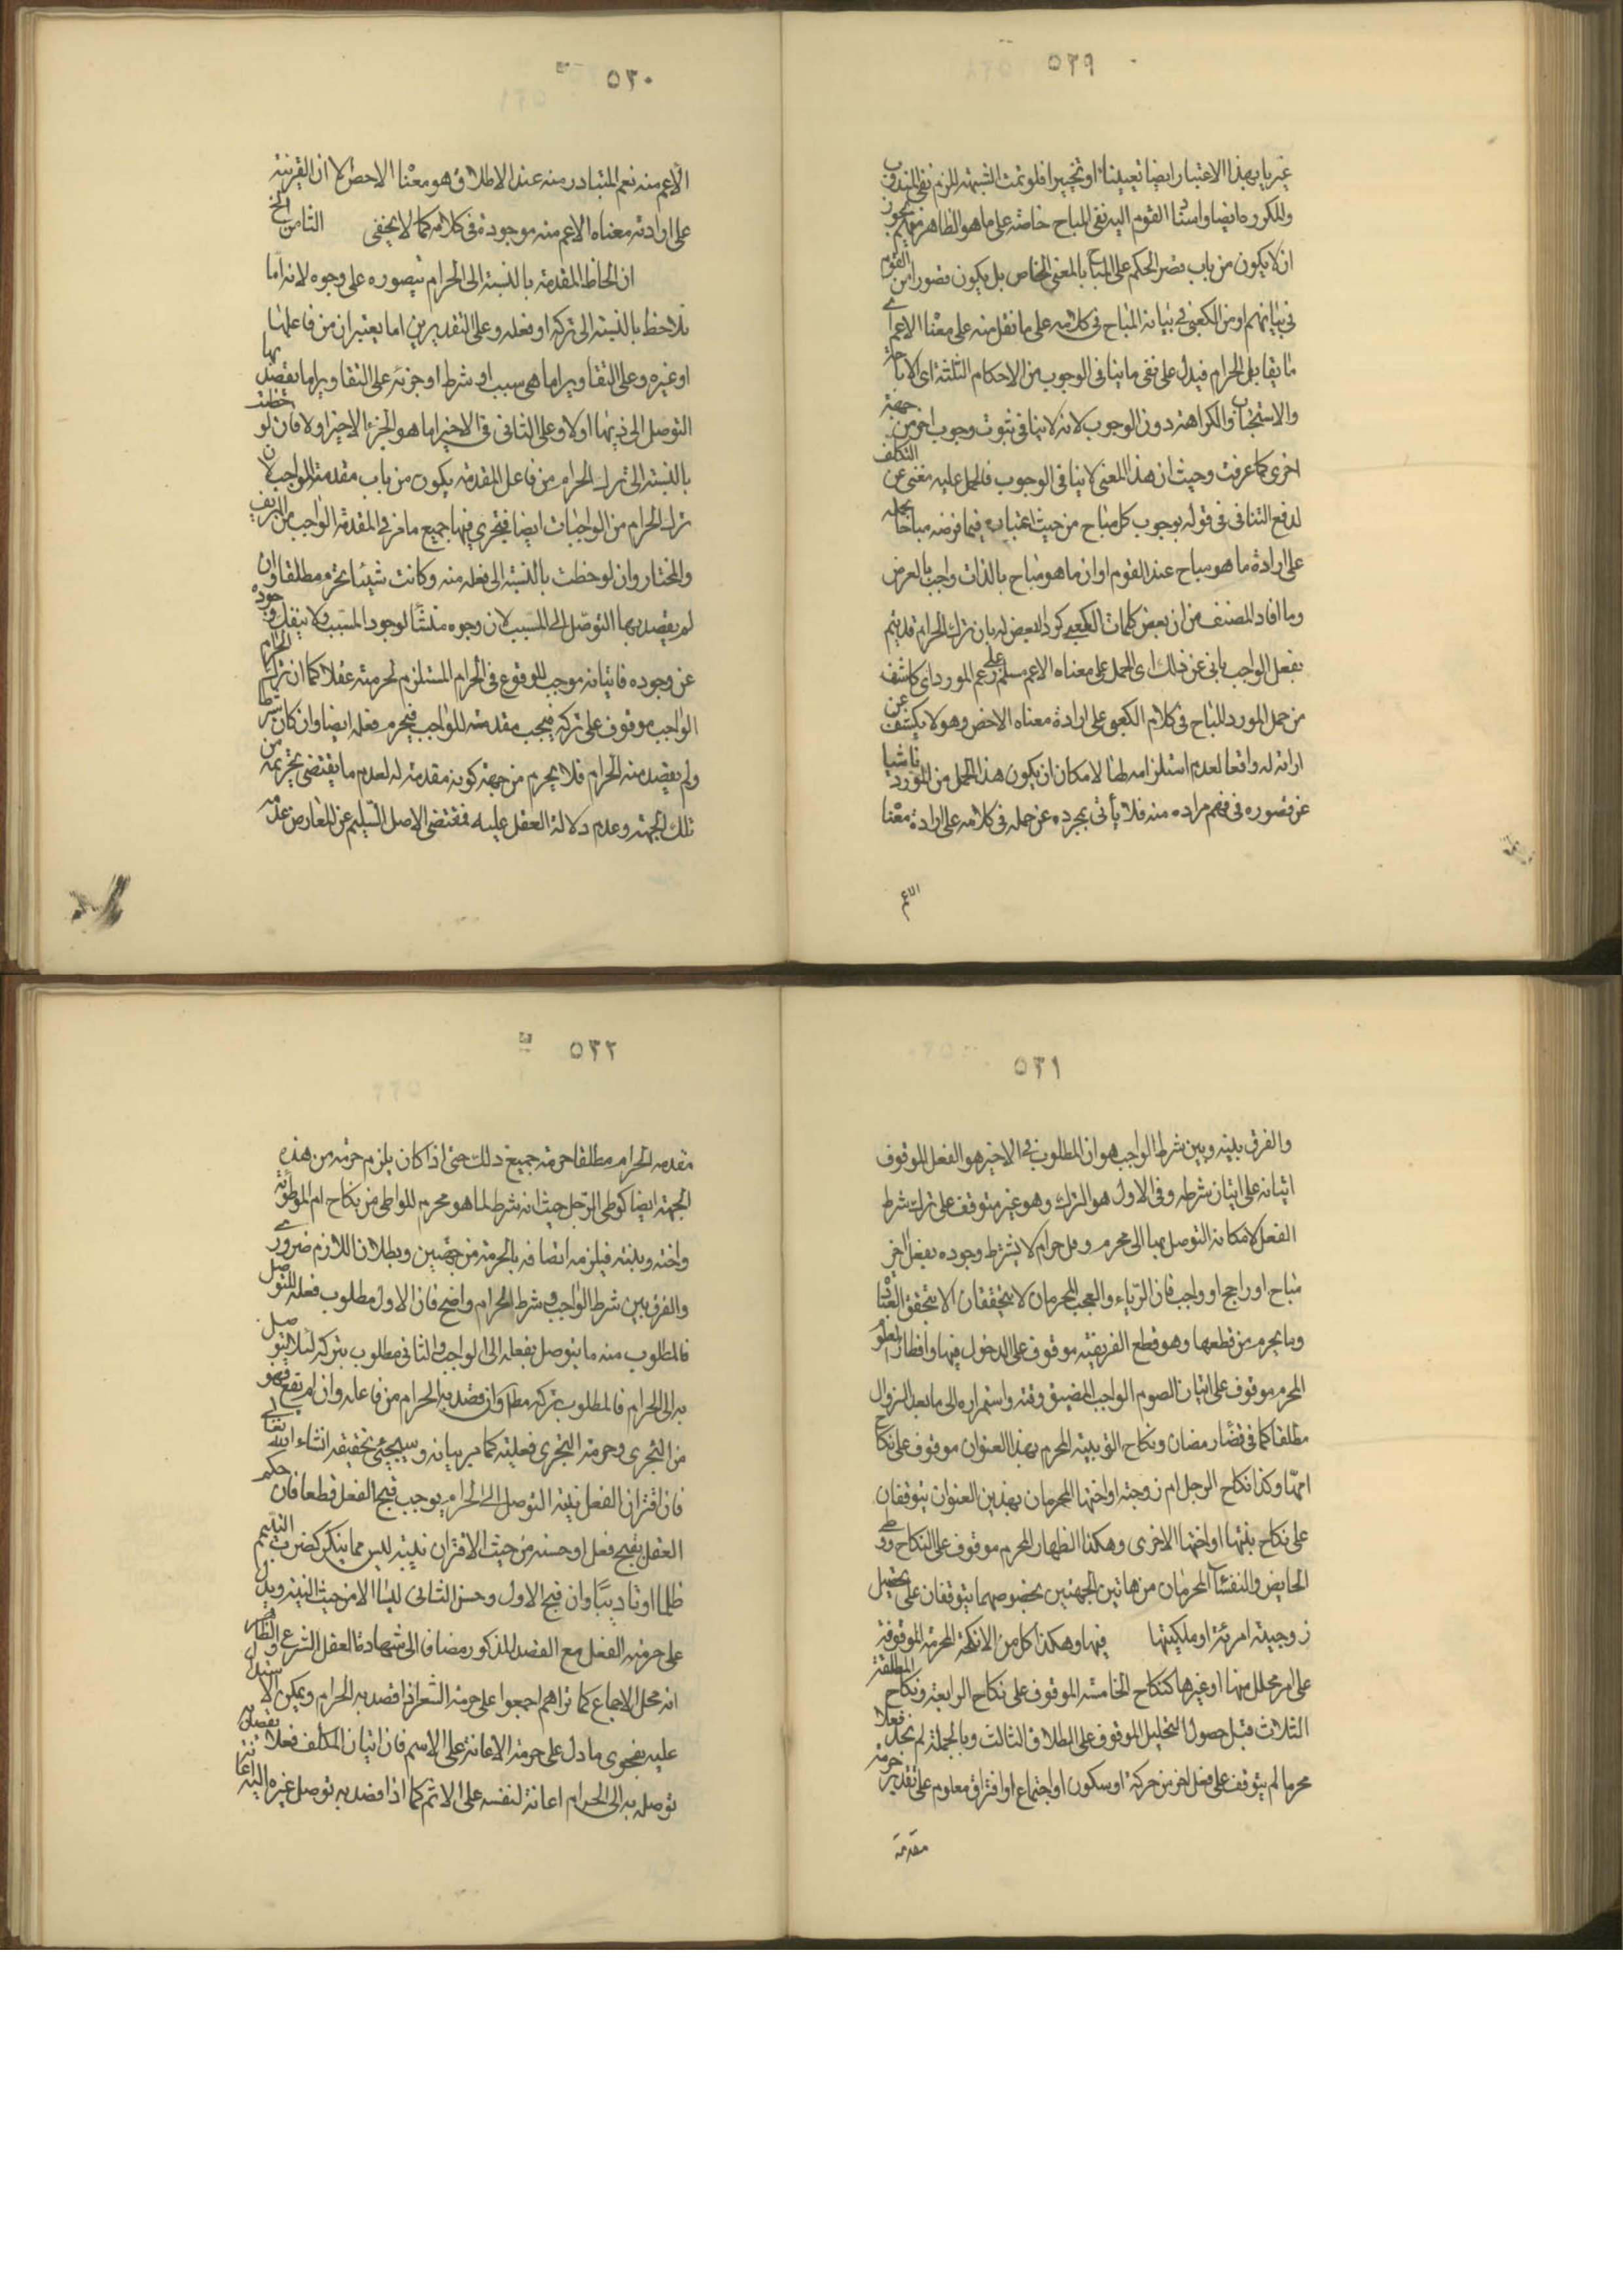 ٥٢٩
غيريا بهذا الاعتبار ايضا تعيينا او تخييرا فلو تمت الشبهة لزم نفى المندوب
والمكروه ايضا واسناد القوم اليه نفى المباح خاصة على ما هو الظاهر منهم يجوز
ان لا يكون من باب قصر الحكم على المباح بالمعنى الخاص بل يكون قصورا من القوم
فى بيانهم او من الكعبى فى بيانه المباح فى كلامه على ما نقل منه على معناه الاعم اى
ما يقابل الحرام فيدل على نفى ما ينافى الوجوب من الاحكام الثلثة اى الاباحة
والاستحباب والكراهة دون الوجوب لانه لا ينافى ثبوت وجوب اخر من جهة
اخرى كما عرفت وحيث ان هذا المعنى لا ينافى الوجوب فالحمل عليه مغنى عن التكلف
لدفع التنافى فى قوله بوجوب كل مباح من حيث اعتباره فيما فرضه مباحا بحمله
على ارادة ما هو مباح عند القوم او ان ما هو مباح بالذات واجب بالعرض
وما افاد المصنف من ان بعض كلمات الكعبى كرد البعض له بان ترك الحرام قد يتم
بفعل الواجب يابى عن ذلك اى الحمل على معناه الاعم مسلم على زعم المورد اى كاشف
من حمل المورد المباح فى كلام الكعبى على ارادة معناه الاخص وهو لا يكشف عن
ارادته له واقعا لعدم استلزامه لها لامكان ان يكون هذا الحمل من المورد ناشيا
عن قصوره فى فهم مراده منه فلا يأبى بمجرده عن حمله فى كلامه على ارادة معناه
الاعم
٥٣٠
الاعم منه نعم المتبادر منه عند الاطلاق هو معناه الاخص الا ان القرينة
على ارادته معناه الاعم منه موجودة فى كلامه كما لا يخفى الثامن الخ
ان لحاظ المقدمة بالنسبة الى الحرام يتصوره على وجوه لانه اما
يلاحظ بالنسبة الى تركه او فعله وعلى التقديرين اما يعتبران من فاعلها
او غيره وعلى التقاوير اما هى سبب او شرط او جزئه على التقاوير اما يقصد بها
التوصل الى ذيها اولا وعلى الثانى فى الاخير اما هو الجزء الاخير اولا فان لوحظت
بالنسبة الى ترك الحرام من فاعل المقدمة يكون من باب مقدمة الواجب لان
ترك الحرام من الواجبات ايضا فتجرى فيها جميع ما مر فى المقدمة الواجب من التزييف
والمختار وان لوحظت بالنسبة الى فعله منه وكانت شيئا تحرم مطلقا وان
لم يقصد بها التوصل الى المسبب لان وجوه منشأ لوجود المسبب ولا ينفك وجوده
عن وجوده فاتيانه موجب للوقوع فى الحرام المستلزم لحرمته عقلا كما ان ترك الحرام
الواجب موقوف على تركه فيجب مقدمته للواجب فيحرم فعله ايضا وان كان شرطا
ولم يقصد منه الحرام فلا يحرم من جهة كونه مقدمة له لعدم ما يقتضى تحريمه من
تلك الجهة وعدم دلالة العقل عليه فمقتضى الاصل السليم عن المعارض عدمه
٥٣١
والفرق بينه وبين شرط الواجب هو ان المطلوب فى الاخير هو الفعل الموقوف
اتيانه على اتيان شرطه وفى الاول هو الترك وهو غير متوقف على ترك شرط
الفعل لامكانه التوصل بها الى محرم وقل حرام لا يشترط وجوده بفعل اخر
مباح او راجح او واجب فان الرياء والعجب المحرمان لا يتحققان الا بتحقق العبادة
وما يحرم من قطعها وهو قطع الفريضة موقوف على الدخول فيها وافطار الصوم
المحرم موقوف على اتيان الصوم الواجب المضيق وقته واستمراره الى ما بعد الزوال
مطلقا كما فى قضاء رمضان ونكاح الربيبة المحرم بهذا العنوان موقوف على نكاح
امها وكذا نكاح الرجل ام زوجته او اختها المحرمان بهذين العنوان يتوقفان
على نكاح بنتها او اختها الاخرى وهكذا الظهار المحرم موقوف على النكاح ووطى
الحايض والنفساء المحرمان من هاتين الجهتين بخصوصهما يتوقفان على تحصيل
زوجية امرئة او ملكيتها فيها وهكذا كل من الانكحة المحرمة الموقوفة
على امر محلل منها او غيرها كنكاح الخامسة الموقوف على نكاح الرابعة ونكاح المطلقة
الثلاث قبل حصول التحليل الموقوف على الطلاق الثالث وبالجملة لم نجد فعلا
محرما لم يتوقف على فعل اخر من حركة او سكون او اجتماع او افتراق معلوم على تقدير حرمة
مقدمة
٥٣٢
مقدمه الحرام مطلقا حرمة جميع ذلك حتى اذا كان يلزم حرمة من هذه
الجهة ايضا كوطى الرجل حيث انه شرط لما هو محرم للواطى من نكاح ام الموطوئة
واخته وبنته فيلزمه اتصافه بالحرمة من جهتين وبطلان اللازم ضرورى
والفرق بين شرط الواجب وشرط الحرام واضح فان الاول مطلوب فعله للتوصل
فالمطلوب منه ما يتوصل بفعله الى الواجب والثانى مطلوب بتركه لئلا يتوصل
به الى الحرام فالمطلوب بتركه مطلقا وان قصد به الحرام من فاعله وان لم يقع فهو
من التجرى وحرمة التجرى فعليته كما مر بيانه وسيجئى تحقيقه انشاء الله تعالى
فان اقتران الفعل بنية التوصل الى الحرام يوجب قبح الفعل قطعا فان حكم
العقل بقبح فعل او حسنه من حيث الاقتران بنيته ليس مما ينكر كضرب اليتيم
ظلما او تاديبا وان قبح الاول وحسن الثانى ليسا الا من حيث النية ويدل
على حرمة الفعل مع القصد المذكور مضافا الى شهادة العقل الشرع والظاهر
انه محل الاجماع كما تراهم اجمعوا على حرمة السفر اذا قصد به الحرام ويمكن الاستدلال
عليه بفحوى ما دل على حرمة الاعانة على الاسم فان اتيان المكلف فعلا بقصد
توصله به الى الحرام اعانة لنفسه على الاثم كما اذا قصد به توصل غيره اليه اعانة